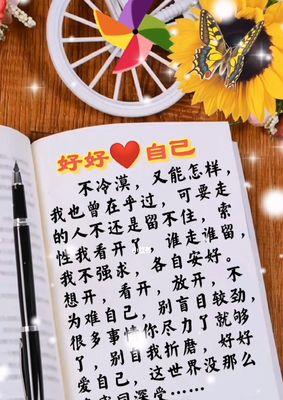 好好❤️自己
不冷漠，又能怎样，
我也曾在乎过，可要走
的人不还是留不住，索
性我看开了，谁走谁留，
我不强求，各自安好。
想开，看开，放开，不
为难自己，别盲目较劲，
很多事情你尽力了就够
了，别自我折磨，好好
爱自己，这世界没那么
同深受……